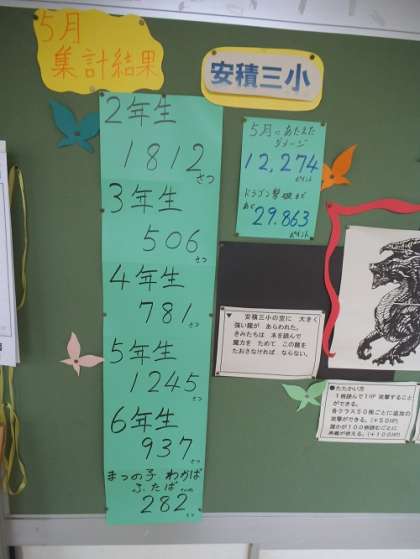 5月
集計結果
安積三小
2年生
1812
さつ
3年生
506
さつ
4年生
781
さつ
5年生
1245
さつ
6年生
937
さつ
まつの子 わかば
ふたば
282
さつ
5月にあたえた
ダメージ
12,274
ポイント
ドラゴン撃破まで
あと
29.863
ポイント
▼ 安積三小の空に 大きく
強い龍が あらわれた。
きみたちは 本を読んで
魔力を ためて この龍を
たおさなければ ならない。
●たたかい方
1冊読んで1HP 攻撃すること
ができる。
各クラス50冊ごとに追加の
攻撃ができる。(+50HP)
誰かが100冊読むごとに
奥義が使える。(+100HP)